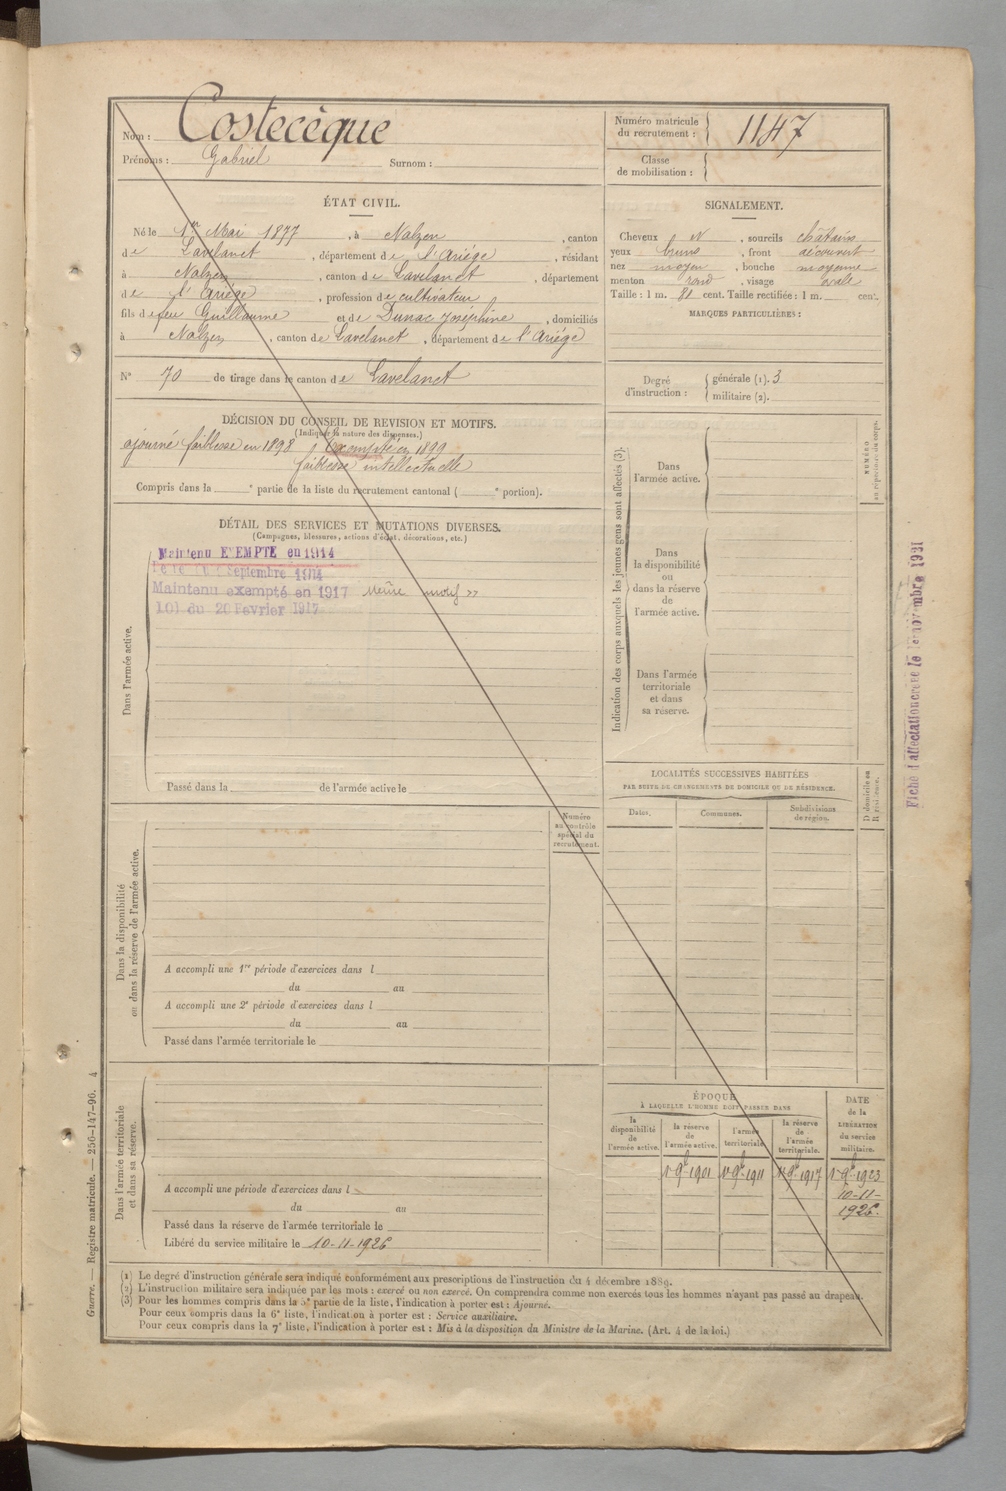 Nom : Costecèque
Prénoms : Gabriel Surnom :
Numéro matricule
du recrutement : 1147
Classe
de mobilisation :
ÉTAT CIVIL.
Né le 1er Mai 1877, à Nalzen, canton
de Lavelanet, département de l'Ariége, résidant
à Nalzen, canton de Lavelanet, département
de l'Ariége, profession de cultivateur
fils de feu Guillaume et de Dunac Joséphine, domiciliés
à Nalzen, canton de Lavelanet, département de l'Ariége
N° 70 de tirage dans le canton de Lavelanet
SIGNALEMENT.
Cheveux N, sourcils châtains
yeux bruns, front découvert
nez moyen, bouche moyenne
menton rond, visage ovale
Taille : 1 m. 80 cent. Taille rectifiée : 1 m. cent.
MARQUES PARTICULIÈRES :
Degré
d'instruction :
générale (1). 3
militaire (2).
DÉCISION DU CONSEIL DE REVISION ET MOTIFS.
(Indiquer la nature des dispenses.)
ajourné faiblesse en 1898 Exempté en 1899
faiblesse intellectuelle
Compris dans la e partie de la liste du recrutement cantonal ( e portion).
DÉTAIL DES SERVICES ET MUTATIONS DIVERSES.
(Campagnes, blessures, actions d'éclat, décorations, etc.)
Maintenu EXEMPTE en 1914
Septembre 1914
Maintenu exempté en 1917 même motif »
LOI du 20 Fevrier 1917
Dans l'armée active.
Passé dans la de l'armée active le
Indication des corps auxquels les jeunes gens sont affectés (3).
Dans
l'armée active.
Dans
la disponibilité
ou
dans la réserve
de
l'armée active.
Dans l'armée
territoriale
et dans
sa réserve.
NUMÉRO
au répertoire du corps.
LOCALITÉS SUCCESSIVES HABITÉES
PAR SUITE DE CHANGEMENTS DE DOMICILE OU DE RÉSIDENCE.
Dates.
Communes.
Subdivisions
de région.
D domicile ou
R résidence.
Fiche d'affectation créée le 1er novembre 1931
Numéro
au contrôle
spécial du
recrutement.
Dans la disponibilité
ou dans la réserve de l'armée active.
A accompli une 1re période d'exercices dans l
du au
A accompli une 2e période d'exercices dans l
du au
Passé dans l'armée territoriale le
Dans l'armée territoriale
et dans sa réserve.
A accompli une période d'exercices dans l
du au
Passé dans la réserve de l'armée territoriale le
Libéré du service militaire le 10-11-1926
ÉPOQUE
À LAQUELLE L'HOMME DOIT PASSER DANS
la
disponibilité
de
l'armée active.
la réserve
de
l'armée active.
l'armée
territoriale.
la réserve
de
l'armée
territoriale.
DATE
de la
LIBÉRATION
du service
militaire.
1-9b-1901 1-9b-1911 1-9b-1917 1-9b-1923
10-11-
1926.
(1) Le degré d'instruction générale sera indiqué conformément aux prescriptions de l'instruction du 4 décembre 1889.
(2) L'instruction militaire sera indiquée par les mots : exercé ou non exercé. On comprendra comme non exercés tous les hommes n'ayant pas passé au drapeau.
(3) Pour les hommes compris dans la 5e partie de la liste, l'indication à porter est : Ajourné.
Pour ceux compris dans la 6e liste, l'indication à porter est : Service auxiliaire.
Pour ceux compris dans la 7e liste, l'indication à porter est : Mis à la disposition du Ministre de la Marine. (Art. 4 de la loi.)
Guerre. — Registre matricule. — 256-147-96. 4